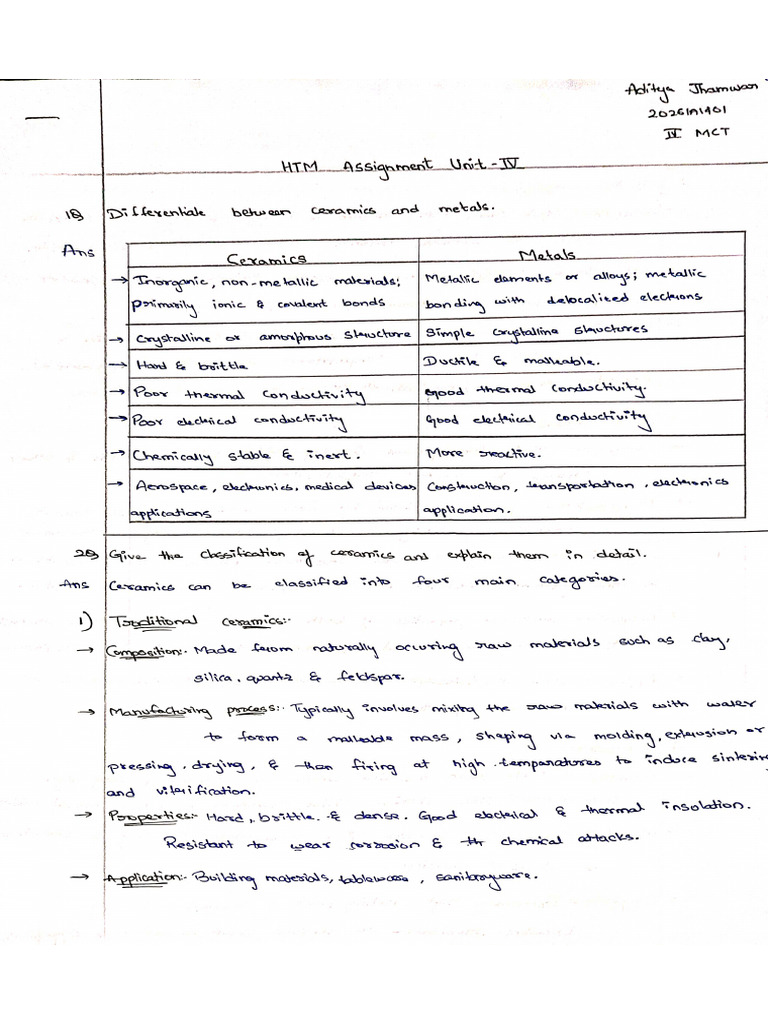 Aditya Jhamwar
2026IA1401
IV MCT
HTM Assignment Unit-IV
1Q Differentiate between ceramics and metals.
Ans
Ceramics Metals
→ Inorganic, non-metallic materials; Metallic elements or alloys; metallic
primarily ionic & covalent bonds bonding with delocalized electrons
→ Crystalline or amorphous structure Simple crystalline structures
→ Hard & brittle Ductile & malleable.
→ Poor thermal conductivity Good thermal conductivity.
→ Poor electrical conductivity Good electrical conductivity
→ Chemically stable & inert. More reactive.
→ Aerospace, electronics, medical devices Construction, transportation, electronics
applications application.
2Q Give the classification of ceramics and explain them in detail.
Ans Ceramics can be classified into four main categories.
1) Traditional ceramics:-
→ Composition:- Made from naturally occuring raw materials such as clay,
silica, quartz & feldspar.
→ Manufacturing process:- Typically involves mixing the raw materials with water
to form a malleable mass, shaping via molding, extrusion or
pressing, drying, & than firing at high temparatures to induce sintering
and vitrification.
→ Properties:- Hard, brittle & dense. Good electrical & thermal insolation.
Resistant to wear corrosion & th chemical attacks.
→ Application:- Building materials, tableware, sanitaryware.